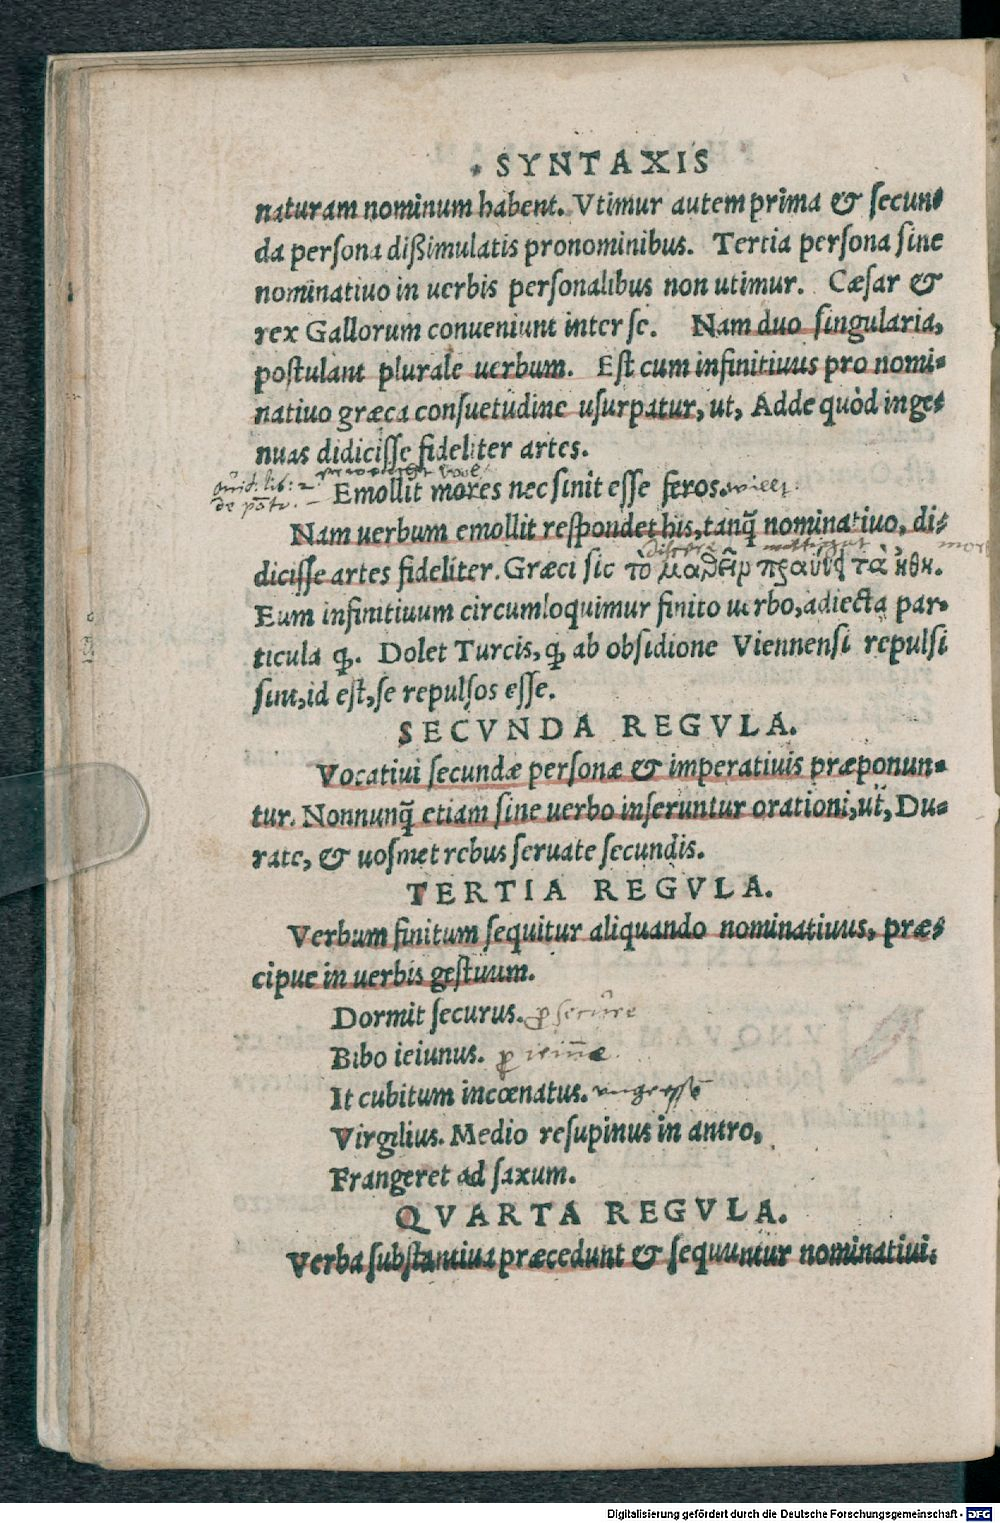 SYNTAXIS
naturam nominum habent. Vtimur autem prima & secun-
da persona dißimulatis pronominibus. Tertia persona sine
nominatiuo in uerbis personalibus non utimur. Cæsar &
rex Gallorum conueniunt inter se. Nam duo singularia,
postulant plurale uerbum. Est cum infinitiuus pro nomi-
natiuo græca consuetudine usurpatur, ut, Adde quòd inge-
nuas didicisse fideliter artes.
Emollit mores nec sinit esse feros.
Nam uerbum emollit respondet his, tanq̃ nominatiuo, di-
dicisse artes fideliter. Græci sic τὸ μαθεῖν πραΰνει τὰ ἤθη.
Eum infinitiuum circumloquimur finito uerbo, adiecta par-
ticula ꝙ. Dolet Turcis, ꝙ ab obsidione Viennensi repulsi
sint, id est, se repulsos esse.
SECVNDA REGVLA.
Vocatiui secundæ personæ & imperatiuis præponun-
tur. Nonnunq̃ etiam sine uerbo inseruntur orationi, ut, Du-
rate, & uosmet rebus seruate secundis.
TERTIA REGVLA.
Verbum finitum sequitur aliquando nominatiuus, præ-
cipue in uerbis gestuum.
Dormit securus. p secure
Bibo ieiunus.
It cubitum incœnatus.
Virgilius. Medio resupinus in antro,
Frangeret ad saxum.
QVARTA REGVLA.
Verba substantiua præcedunt & sequuntur nominatiui.
Digitalisierung gefördert durch die Deutsche Forschungsgemeinschaft - DFG